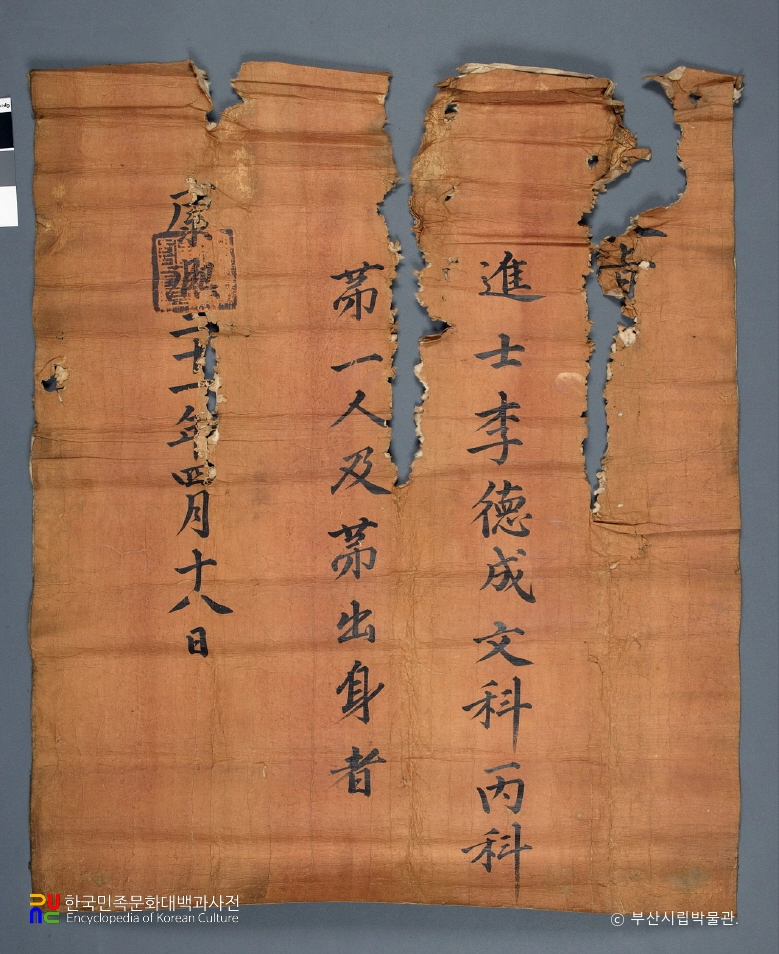 旨
進士李德成文科丙科
苐一人及苐出身者
康熙二十一年四月十八日
한국민족문화대백과사전
Encyclopedia of Korean Culture
ⓒ 부산시립박물관.